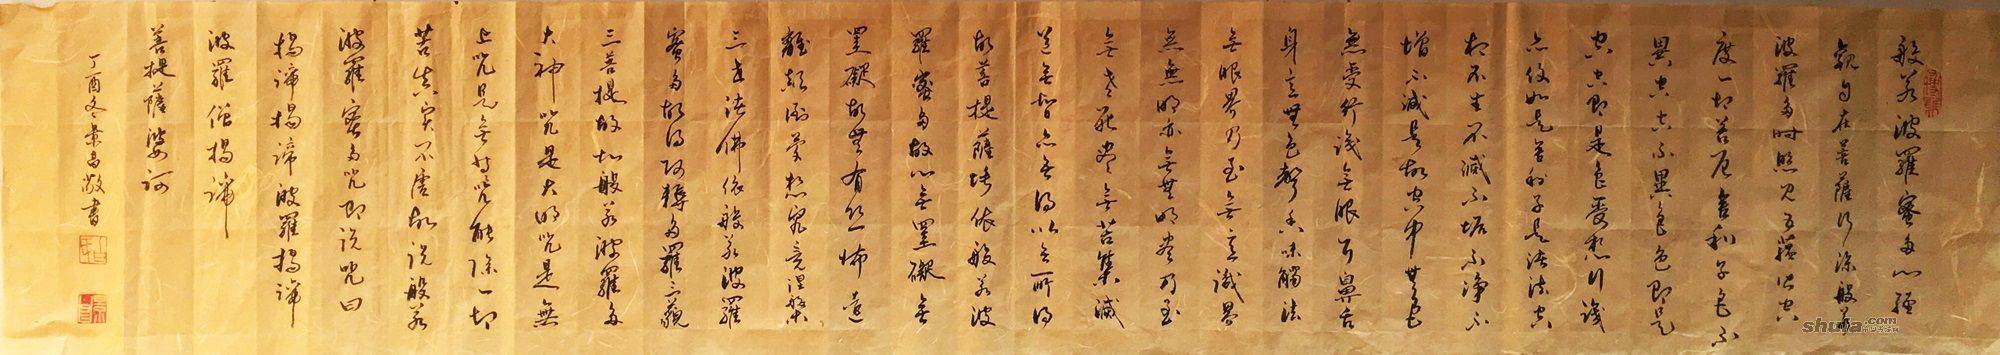 般若波羅蜜多心經
觀自在菩薩行深般若
波羅多時照見五蘊皆空
度一切苦厄舍利子色不
異空空不異色色即是
空空即是色受想行識
亦復如是舍利子是諸法空
相不生不滅不垢不淨不
增不減是故空中無色
無受行識無眼耳鼻舌
身意無色聲香味觸法
無眼界乃至無意識界
無無明亦無無明盡乃至
無老死盡無苦集滅
道無智亦無得以無所得
故菩提薩埵依般若波
羅蜜多故心無罣礙無
罣礙故無有恐怖遠
離顛倒夢想究竟涅槃
三世諸佛依般若波羅
蜜多故得阿耨多羅三藐
三菩提故知般若波羅多
大神咒是大明咒是無
上咒是無等咒能除一切
苦真實不虛故說般若
波羅蜜多咒即說咒曰
揭諦揭諦般羅揭諦
波羅僧揭諦
菩提薩婆訶
丁酉冬景昌敬書
shufa.com